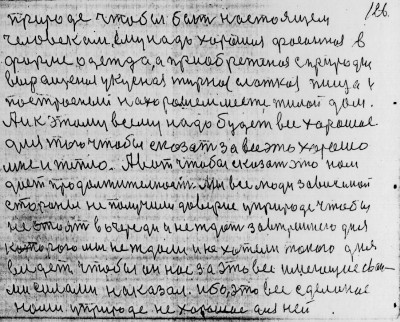 126.
природе чтобы быть настоящем
человеком, ему надо хорошая фасонная в
форме одежда, а приобретенная с природы
выращеная укусная жирна слаткая пища и
построеный на хорошем месте жилой дом.
А и к этому всему надо будет все хорошое
для того чтобы сказать за все это хорошо
мне и тепло. А вот чтобы сказат это нам
дает продолжительность. Мы все люди зависемой
стороны не получили доверие у природе чтобы
не стоят в очереди и не ждат завтрешнего дня
которого мы не ждали и не хотели такого дня
видет, чтобы он нас за это все имеющие сво-
ми силами наказал. ибо, это все сделаное
нами у природе не хорошое для ней.